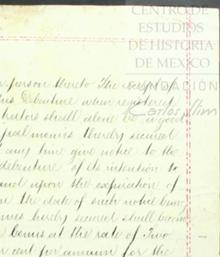 CENTRO DE
ESTUDIOS
DE HISTORIA
DE MEXICO
FUNDACIÓN
Carlos Slim
person thereto The receipt of
this Debenture when registered
shall alone be
moneys thereby secured
any time give notice to the
debenture of its intention to
and upon the expiration of
the date of such notice
moneys hereby secured shall become
at the rate of Two
per cent per annum for the